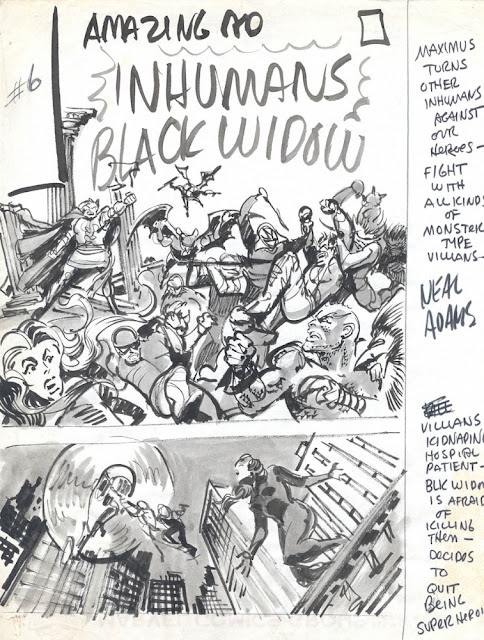 AMAZING AD
#6
INHUMANS
BLACK WIDOW
MAXIMUS
TURNS
OTHER
INHUMANS
AGAINST
OUR
HEROES—
FIGHT
WITH
ALL KINDS
OF
MONSTRIC
TYPE
VILLANS—
NEAL
ADAMS
VILLANS
KIDNAPING
HOSPITAL
PATIENT—
BLK WIDOW
IS AFRAID
OF
KILLING
THEM—
DECIDES
TO
QUIT
BEING
SUPER HEROINE